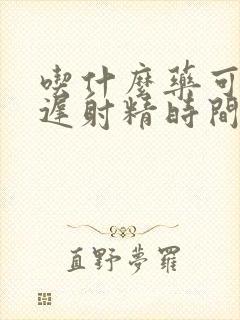 喫什麼藥可
遲射精時間
直野夢羅